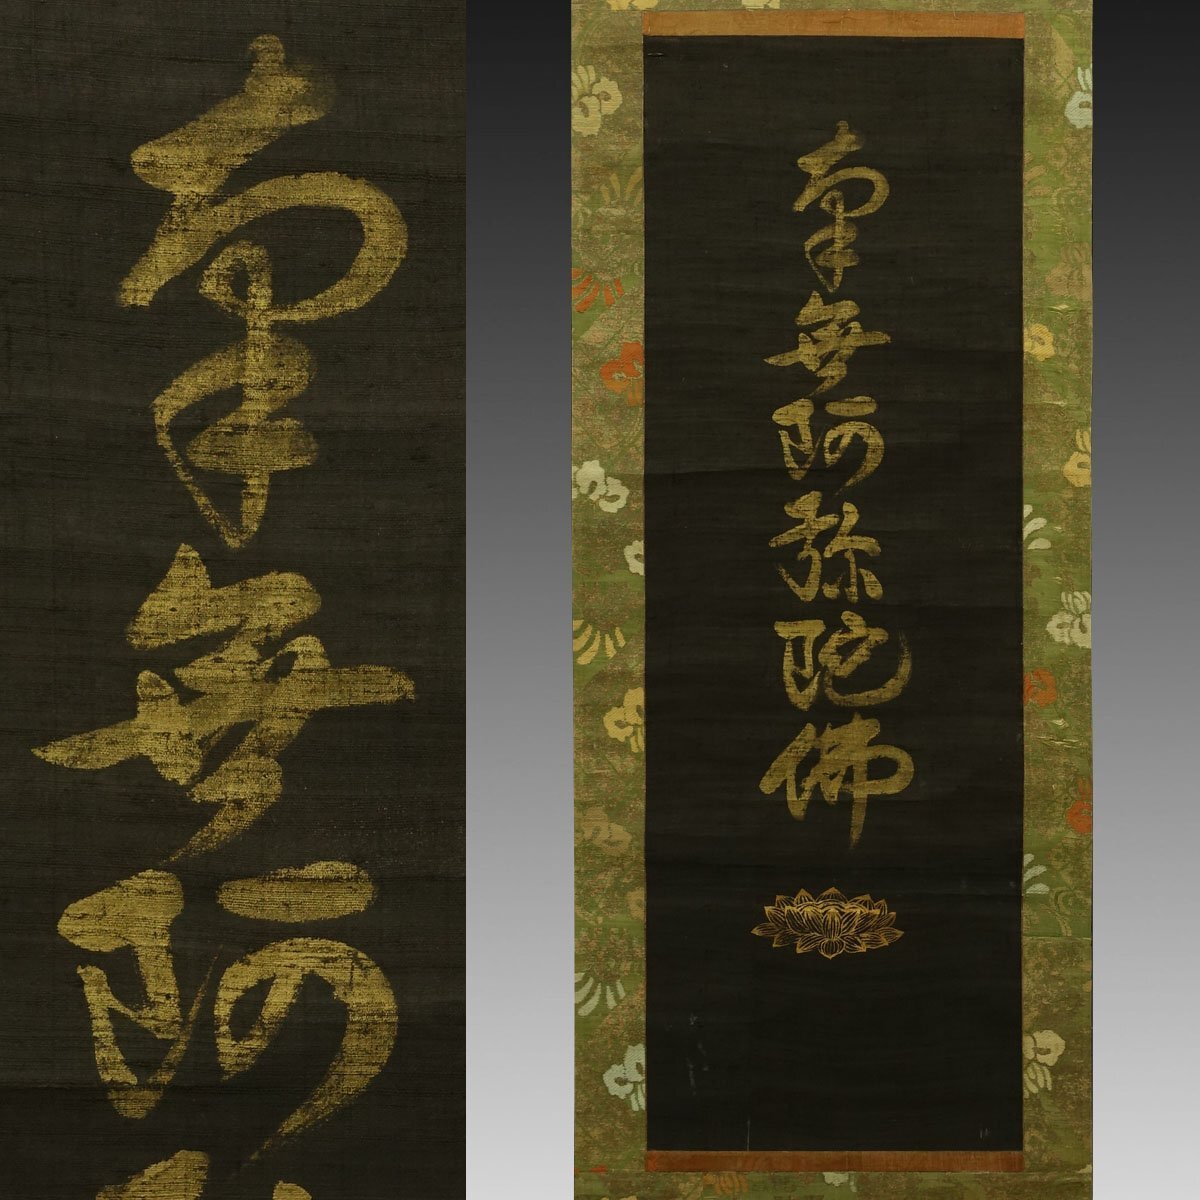 南無阿
南無阿弥陀佛